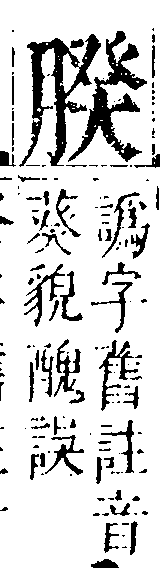 䠏
譌字舊註音
葵貌醜誤